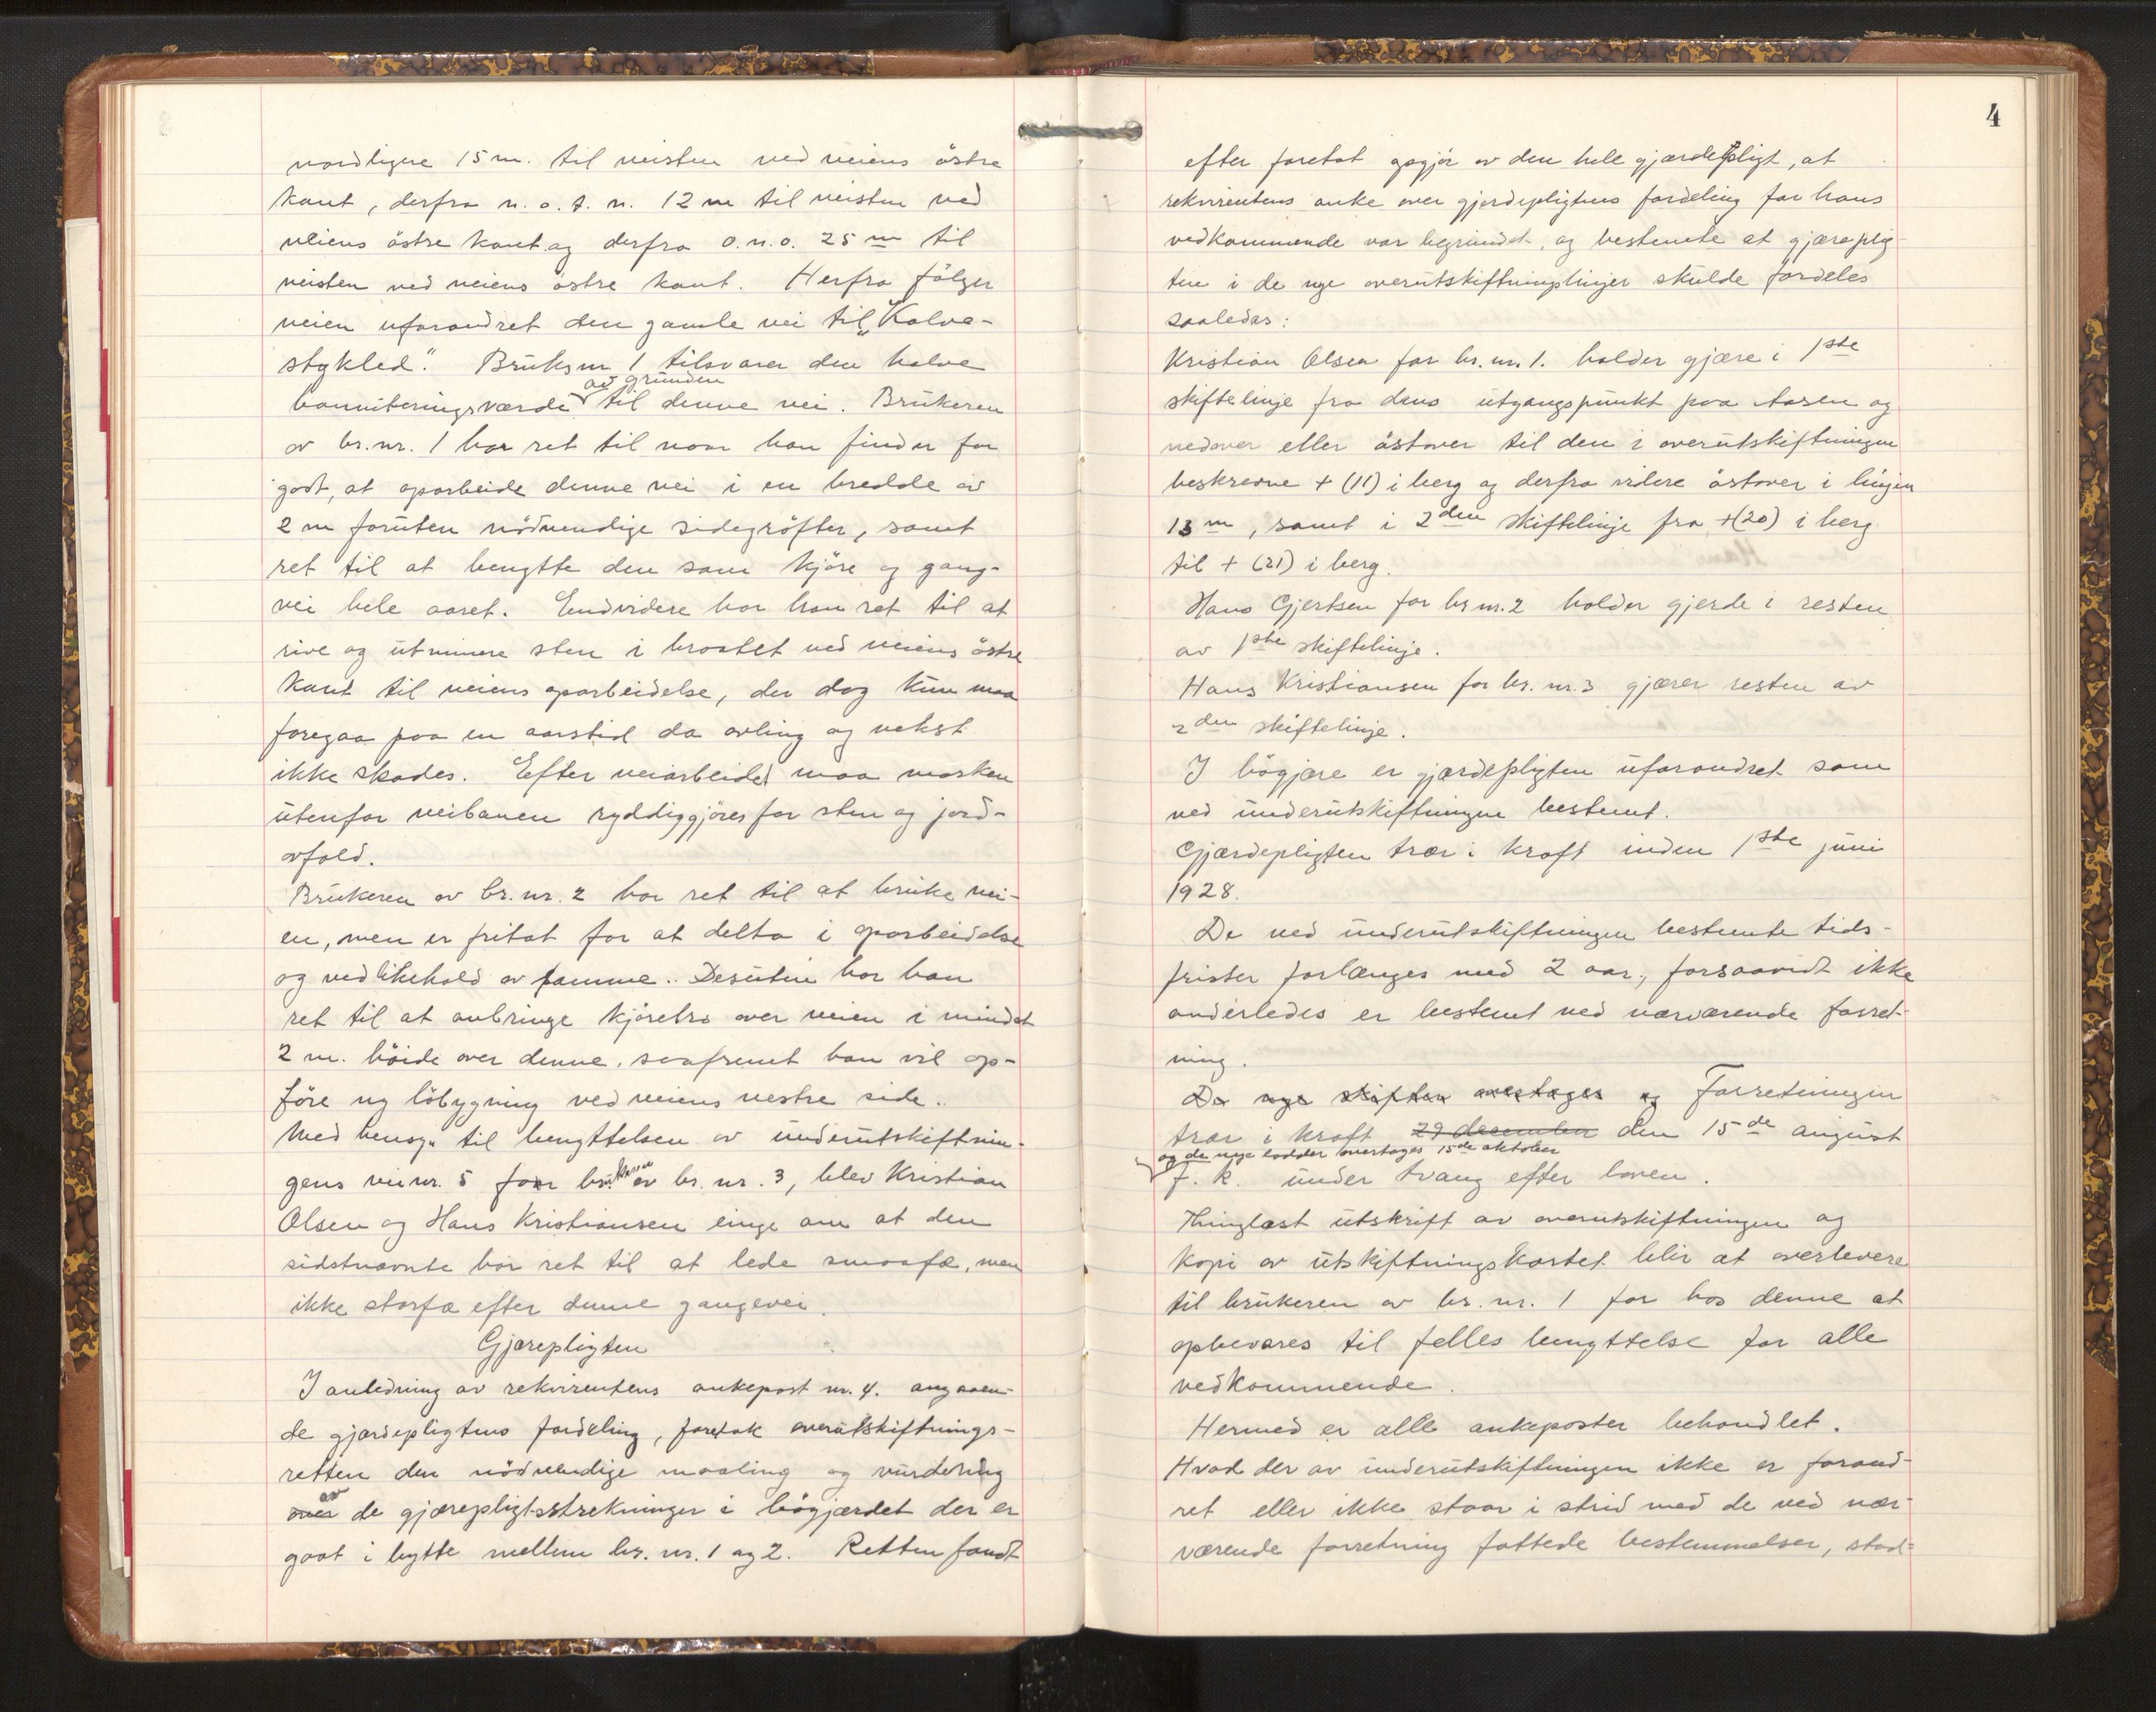 nordligere 15 m. til veisten ved veiens östre
kant, derfra n. o. t. n. 12 m til veisten ved
veiens östre kant og derfra o. n. o. 25 m til
veisten ved veiens östre kant. Herfra fölger
veien uforandret den gamle vei til „Kalve-
stykled." Bruksnr 1 tilsvarer den halve
av grunden
bonniteringsværdi til denne vei. Brukeren
av br. nr. 1 har ret til naar han finder for
godt, at oparbeide denne vei i en bredde av
2 m foruten nödvendige sidegröfter, samt
ret til at benytte den som kjöre og gang-
vei hele aaret. Endvidere har han ret til at
rive og utminere sten i brattet ved veiens östre
kant til veiens oparbeidelse, der dog kun maa
foregaa paa en aarstid da avling og vekst
ikke skades. Efter veiarbeidet maa marken
utenfor veibanen ryddiggjöres for sten og jord-
avfald.
Brukeren av br. nr. 2 har ret til at bruke vei-
en, men er fritat for at delta i oparbeidelse
og vedlikehold av samme. Desuten har han
ret til at anbringe kjörebro over veien i mindst
2 m. höide over denne, saafremt han vil op-
före ny löbygning ved veiens vestre side.
Med hensyn til benyttelsen av underutskiftnin-
gens vei nr. 5 for brukeren av br. nr. 3, blev Kristian
Olsen og Hans Kristiansen enige om at den
sidstnævnte har ret til at lede smaafæ, men
ikke storfæ efter denne gangevei.
Gjærepligten
I anledning av rekvirentens ankepost nr. 4. angaaen-
de gjærdepligtens fordeling, foretok overutskiftnings-
retten den nödvendige maaling og vurdering
av
over de gjærepligtsstrekninger i bögjærdet der er
gaat i bytte mellem br. nr. 1 og 2. Retten fandt
4
efter foretat opgjör av den hele gjærdepligt, at
rekvirentens anke over gjerdepligtens fordeling for hans
vedkommende var begrundet, og bestemte at gjæreplig-
ten i de nye overutskiftningslinjer skulde fordeles
saaledes:
Kristian Olsen for br. nr. 1. holder gjære i 1ste
skiftelinje fra dens utgangspunkt paa Aasen og
nedover eller östover til den i overutskiftningen
beskrevne + (11) i berg og derfra videre östover i linjen
13 m, samt i 2den skiftelinje fra +(20) i berg
til + (21) i berg.
Hans Gjertsen for br nr. 2 holder gjerde i resten
av 1ste skiftelinje.
Hans Kristiansen for br. nr. 3 gjærer resten av
2den skiftelinje.
I bögjære er gjærdepligten uforandret som
ved underutskiftningen bestemt.
Gjærdepligten trær i kraft inden 1ste juni
1928.
De ved underutskiftningen bestemte tids-
frister forlænges med 2 aar, forsaavidt ikke
anderledes er bestemt ved nærværende forret-
ning.
De nye skifter overtages og Forretningen
trær i kraft 29 december den 15de august
og de nye lodder overtages 15de oktober
f. k. under tvang efter loven.
Thinglæst utskrift av overutskiftningen og
kopi av utskiftningskartet blir at overlevere
til brukeren av br. nr. 1 for hos denne at
opbevares til felles benyttelse for alle
vedkommende.
Hermed er alle ankeposter behandlet.
Hvad der av underutskiftningen ikke er forand-
ret eller ikke staar i strid med de ved nær-
værende forretning fattede bestemmelser, stad-